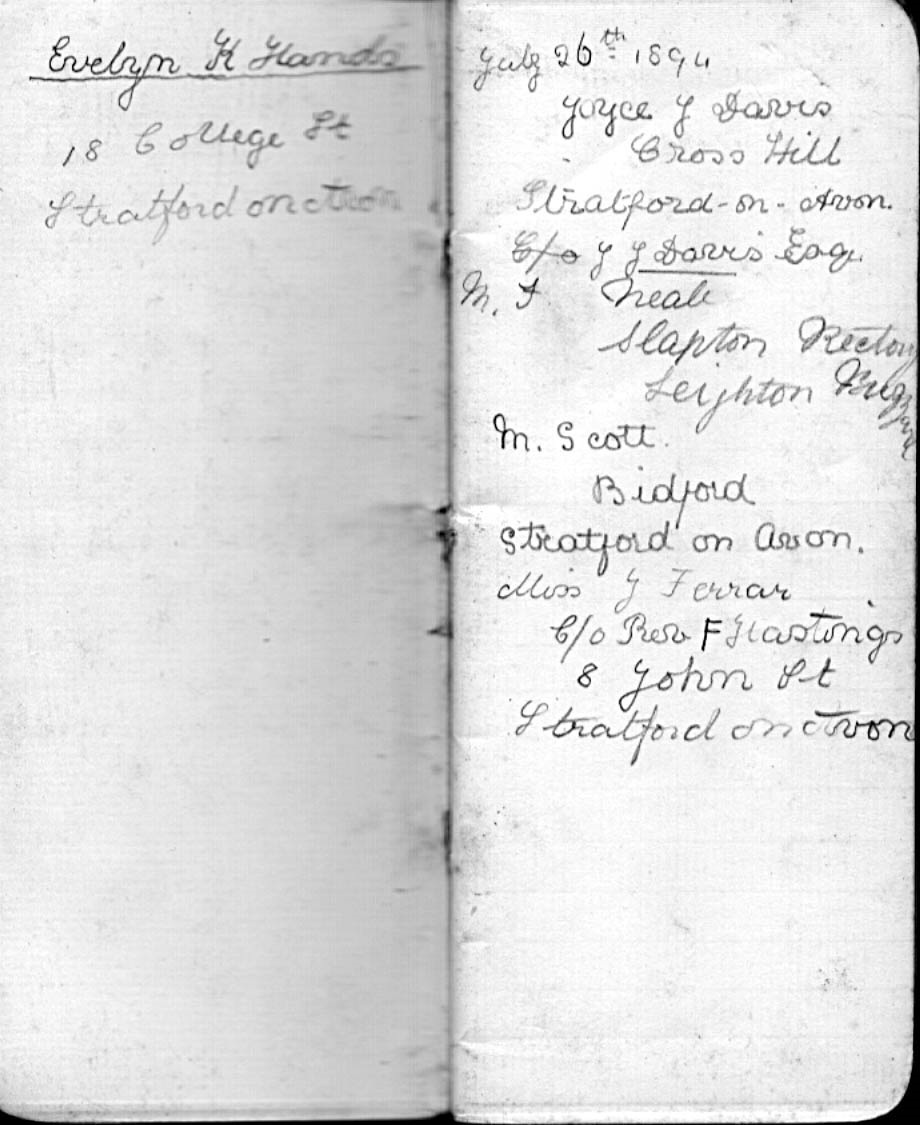 Evelyn K Hands
18 College St
Stratford on Avon
July 26th 1894
Joyce J Davis
Cross Hill
Stratford-on-Avon.
C/o J J Davis Esq.
M. F Neale
Slapton Rectory
Leighton Buzzard
M. Scott.
Bidford
Stratford on Avon.
Miss J Ferrar
C/o Rev F Hastings
8 John St
Stratford on Avon